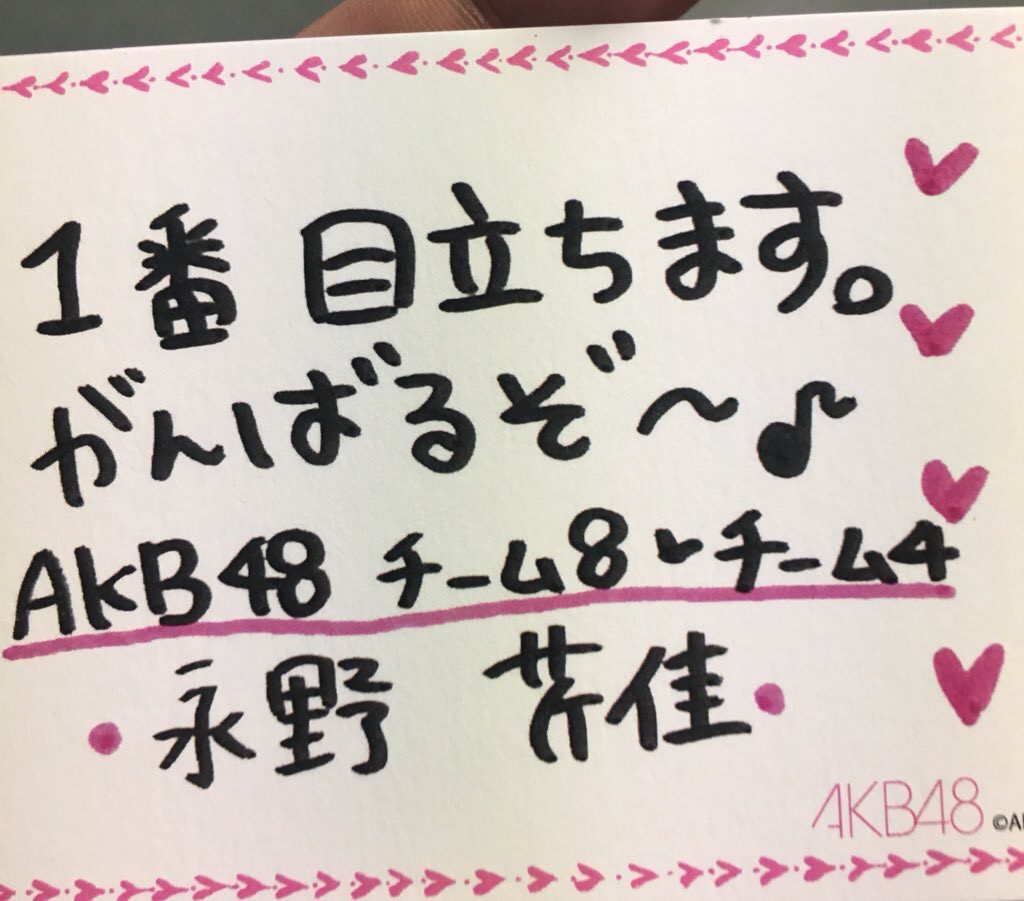 1番 目立ちます。
がんばるぞ〜♪
AKB48 チーム8♥チーム4
永野 芹佳
AKB48